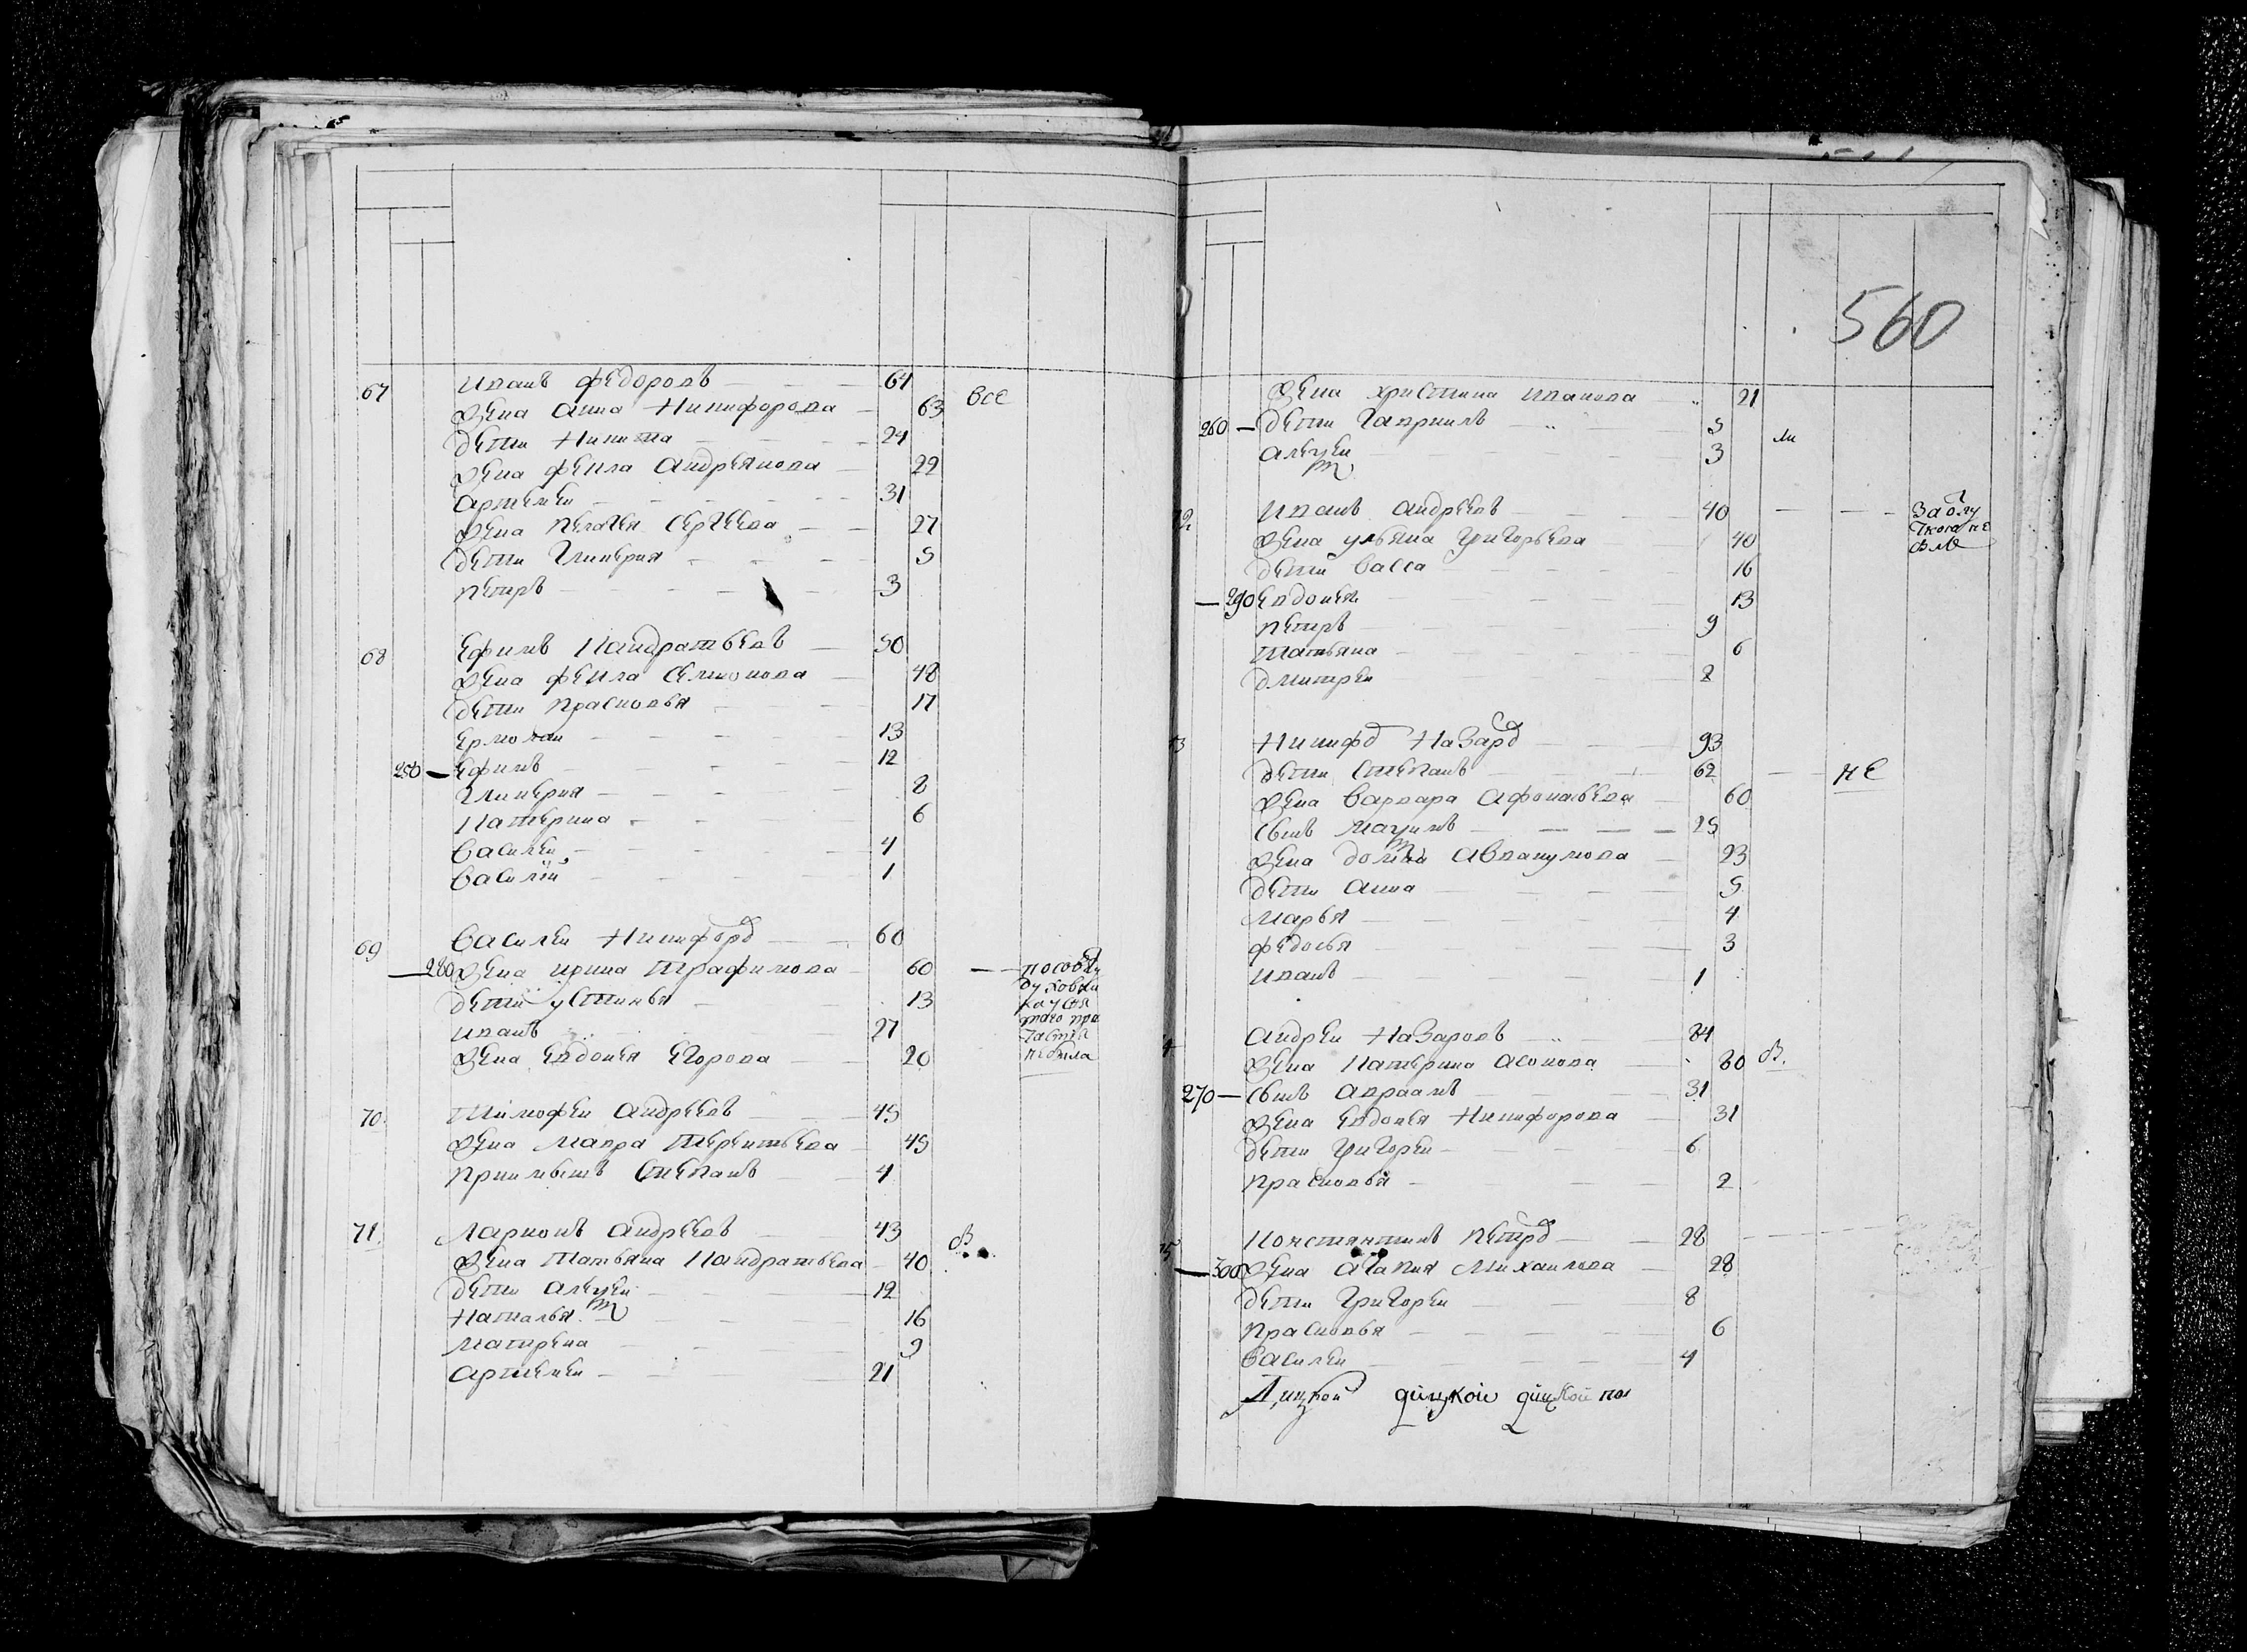 67 Иванъ Федоровъ 64 все
Жена Анна Никифорова 63
Дети Никита 24
Жена Фекла Андреянова 22
Артемеи 31
Жена Пелагея Сергеева 27
Дети Гликерия 5
Петръ 3
68 Ефимъ Кандратьевъ 50
Жена Фекла Селионова 48
Дети Прасковья 17
Ермолаи 13
250 Ефимъ 12
Гликерия 8
Катерина 6
Василеи 4
Василiй 1
69 Василеи Никифоро 60
280 Жена Ирина Трафимова 60
Дети Устинья 13
Иванъ 27
Жена Евдокея Егорова 20
70. Тимофеи Андреевъ 45
Жена Мавра Терентьева 45
Приимышъ Степанъ 4
71. Ларионъ Андреевъ 43 в
Жена Татьяна Кандратьева 40
Дети Алекѣи 12
Наталья 16
Матрена 9
Артемеи 21
560
Жена Христина Иванова 21
260 Дети Гавриилъ 5
Алекѣи 3
Иванъ Андреевъ 40
Жена Ульяна Григорьева 40
Дети Васса 16
290 Евдокея 13
Петръ 9
Татьяна 6
Дмитреи 2
Никифо Назаро 93
Дети Степанъ 62 не
Жена Варвара Афонасьева 60
Сынъ Макимъ 25
Жена Домна Авванумова 23
Дети Анна 5
Марья 4
Федосья 3
Иванъ 1
Андреи Назаровъ 84
Жена Катерина Асонова 80 в.
270 Сынъ Авраамъ 31
Жена Евдокея Никифорова 31
Дети Григореи 6
Прасковья 2
Константинъ Петро 28
300 Жена Агапия Михаилова 28
Дети Григореи 8
Прасковья 6
Василеи 4